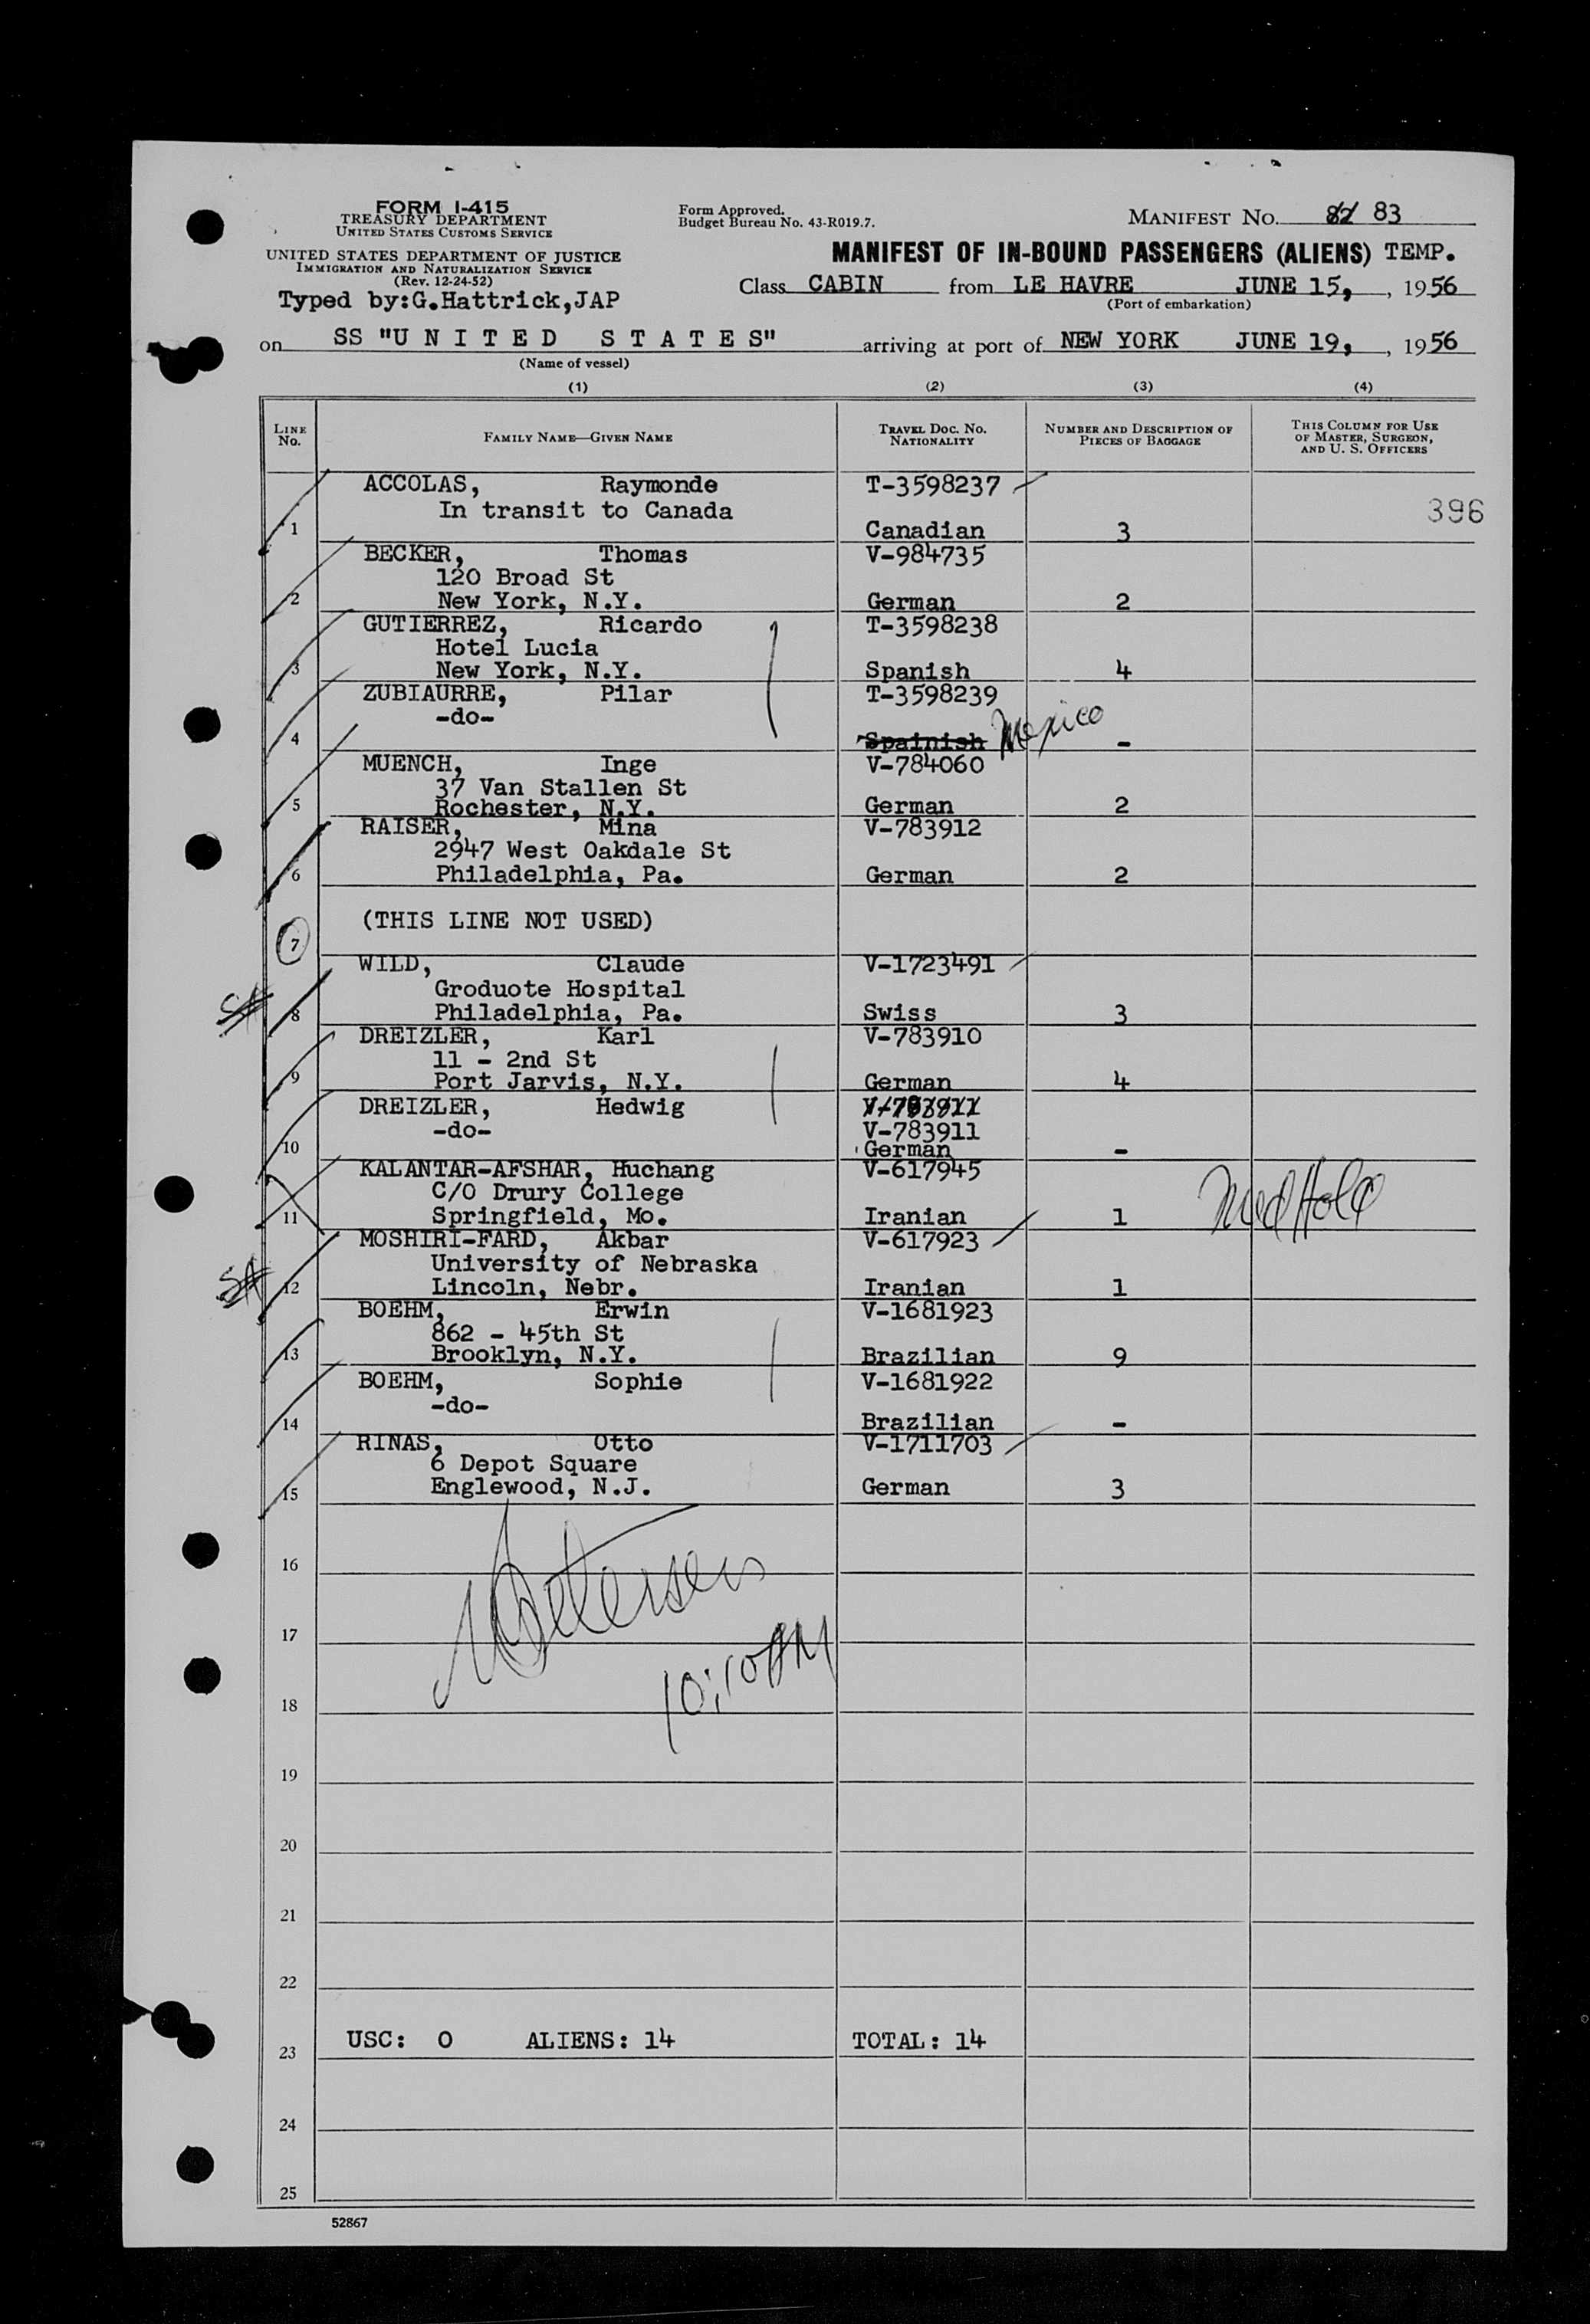 FORM I-415
TREASURY DEPARTMENT
UNITED STATES CUSTOMS SERVICE
UNITED STATES DEPARTMENT OF JUSTICE
IMMIGRATION AND NATURALIZATION SERVICE
(Rev. 12-24-52)
Typed by:G.Hattrick,JAP
Form Approved.
Budget Bureau No. 43-R019.7.
MANIFEST NO. 82 83
MANIFEST OF IN-BOUND PASSENGERS (ALIENS) TEMP.
Class CABIN from LE HAVRE JUNE 15, , 1956
(Port of embarkation)
on SS "U N I T E D S T A T E S" arriving at port of NEW YORK JUNE 19, , 1956
(Name of vessel)
(1) (2) (3) (4)
LINE No. FAMILY NAME—GIVEN NAME TRAVEL DOC. NO. NATIONALITY NUMBER AND DESCRIPTION OF PIECES OF BAGGAGE THIS COLUMN FOR USE OF MASTER, SURGEON, AND U. S. OFFICERS
ACCOLAS, Raymonde T-3598237
In transit to Canada 396
1 Canadian 3
BECKER, Thomas V-984735
120 Broad St
2 New York, N.Y. German 2
GUTIERREZ, Ricardo T-3598238
Hotel Lucia
3 New York, N.Y. Spanish 4
ZUBIAURRE, Pilar T-3598239
-do-
4 Spainish Mexico -
MUENCH, Inge V-784060
37 Van Stallen St
5 Rochester, N.Y. German 2
RAISER, Mina V-783912
2947 West Oakdale St
6 Philadelphia, Pa. German 2
(THIS LINE NOT USED)
7
WILD, Claude V-1723491
Groduote Hospital
8 Philadelphia, Pa. Swiss 3
DREIZLER, Karl V-783910
11 - 2nd St
9 Port Jarvis, N.Y. German 4
DREIZLER, Hedwig
-do- V-783911
10 German -
KALANTAR-AFSHAR, Huchang V-617945
C/O Drury College
11 Springfield, Mo. Iranian 1 Med Hold
MOSHIRI-FARD, Akbar V-617923
University of Nebraska
12 Lincoln, Nebr. Iranian 1
BOEHM, Erwin V-1681923
862 - 45th St
13 Brooklyn, N.Y. Brazilian 9
BOEHM, Sophie V-1681922
-do-
14 Brazilian -
RINAS, Otto V-1711703
6 Depot Square
15 Englewood, N.J. German 3
16
17
10:10 AM
18
19
20
21
22
USC: 0 ALIENS: 14 TOTAL: 14
23
24
25
52867